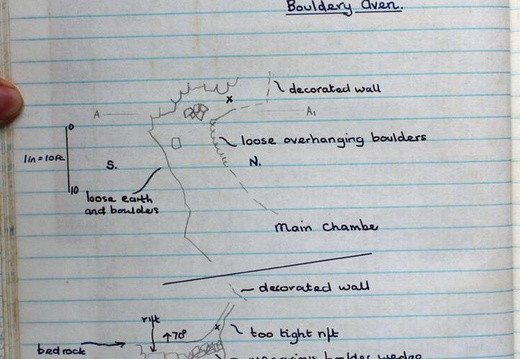 Bouldery Oven.
decorated wall
x
A
A1
0
loose overhanging boulders
1in = 10ft
S.
N.
10
loose earth
and boulders
Main Chambe
decorated wall
rift
↑70°
x
too tight rift
bedrock